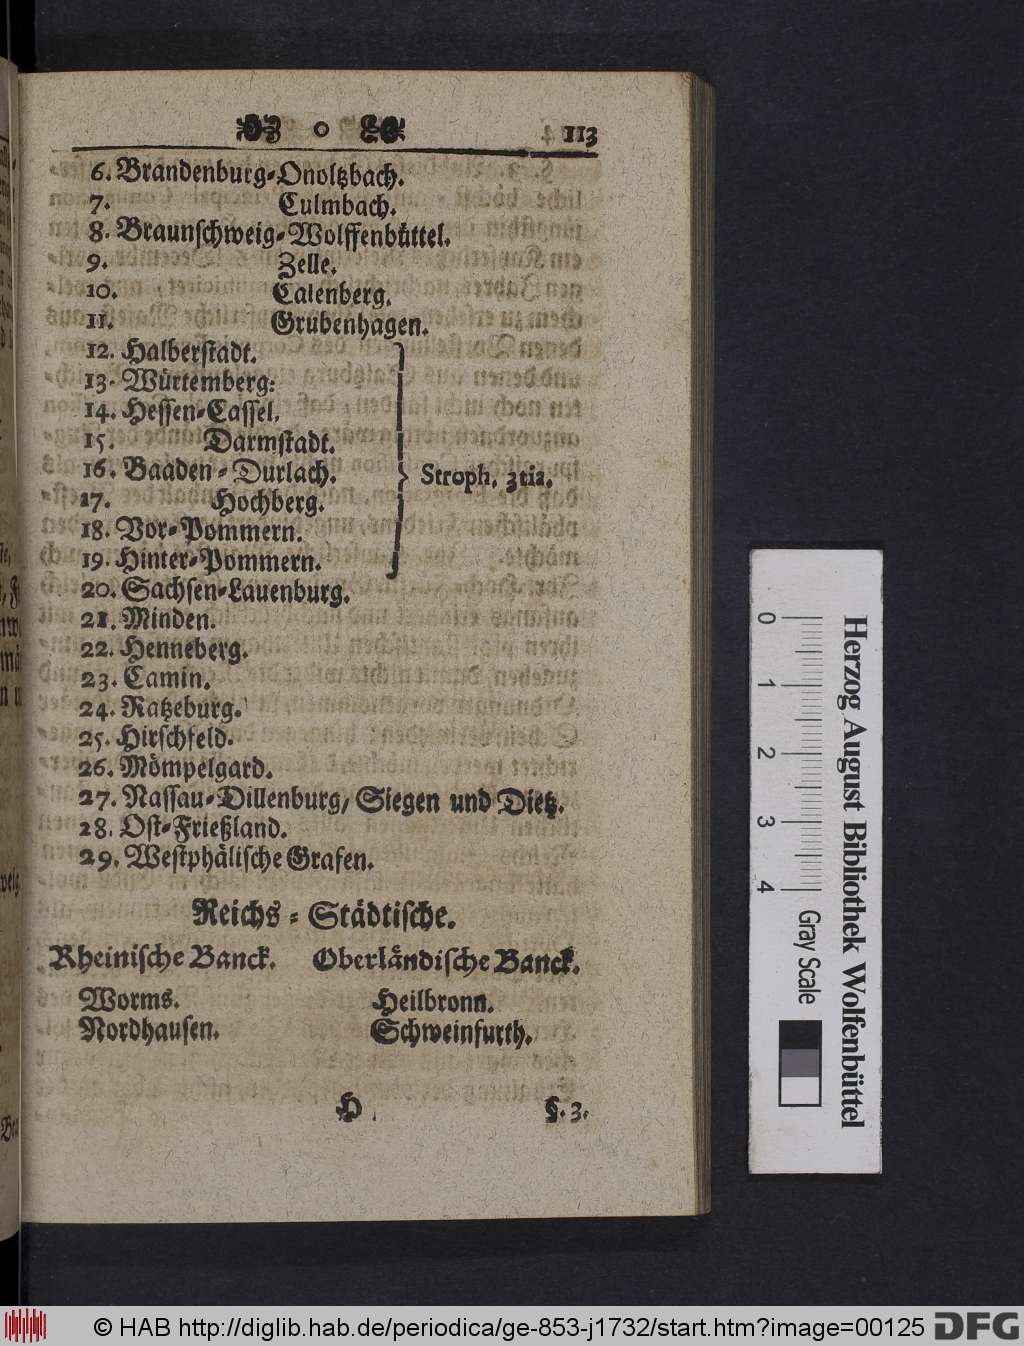 113
6. Brandenburg-Onoltzbach.
7. Culmbach.
8. Braunschweig-Wolffenbüttel.
9. Zelle.
10. Calenberg.
11. Grubenhagen.
12. Halberstadt.
13. Würtemberg.
14. Hessen-Cassel.
15. Darmstadt.
16. Baaden-Durlach. } Stroph. 3tia.
17. Hochberg.
18. Vor-Pommern.
19. Hinter-Pommern.
20. Sachsen-Lauenburg.
21. Minden.
22. Henneberg.
23. Camin.
24. Ratzeburg.
25. Hirschfeld.
26. Mömpelgard.
27. Nassau-Dillenburg/ Siegen und Dietz.
28. Ost-Frießland.
29. Westphälische Grafen.
Reichs-Städtische.
Rheinische Banck. Oberländische Banck.
Worms. Heilbronn.
Nordhausen. Schweinfurth.
H
§. 3.
0 1 2 3 4
Gray Scale
Herzog August Bibliothek Wolfenbüttel
© HAB http://diglib.hab.de/periodica/ge-853-j1732/start.htm?image=00125
DFG